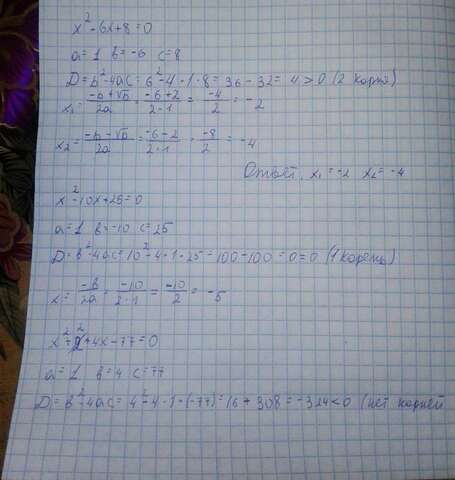 x² - 6x + 8 = 0
a = 1 b = -6 c = 8
D = b² - 4ac = 6² - 4 · 1 · 8 = 36 - 32 = 4 > 0 (2 корня)
x₁ = (-b + √D)/2a = (-6 + 2)/(2 · 1) = -4/2 = -2
x₂ = (-b - √D)/2a = (-6 - 2)/(2 · 1) = -8/2 = -4
Ответ. x₁ = -2 x₂ = -4
x² - 10x + 25 = 0
a = 1 b = -10 c = 25
D = b² - 4ac = 10² - 4 · 1 · 25 = 100 - 100 = 0 = 0 (1 корень)
x = -b/2a = -10/(2 · 1) = -10/2 = -5
x² + 4x - 77 = 0
a = 1 b = 4 c = 77
D = b² - 4ac = 4² - 4 · 1 · (-77) = 16 + 308 = -324 < 0 (нет корней